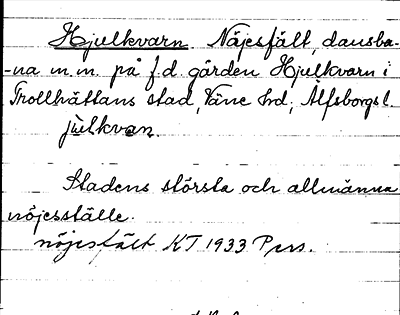 Hjulkvarn. Nöjesfält, dansba-
-na m.m. på f.d. gården Hjulkvarn i
Trollhättans stad, Väne hd, Älfsborgs l.
julkvan.
Stadens största och allmänna
nöjesställe.
nöjesfält KT 1933 Pers.